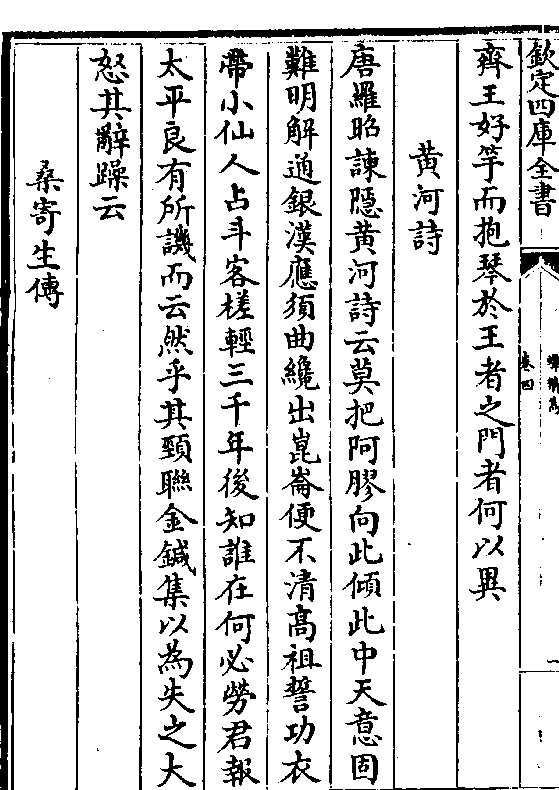 欽定四庫全書
卷四
齊王好竽而抱琴於王者之門者何以異
黃河詩
唐羅昭諫隱黃河詩云莫把阿膠向此傾此中天意固
難明解通銀漢應須曲纔出崑崙便不清高祖誓功衣
帶小仙人占斗客槎輕三千年後知誰在何必勞君報
太平良有所譏而云然乎其頸聯金鍼集以為失之大
怒其辭躁云
桑寄生傳